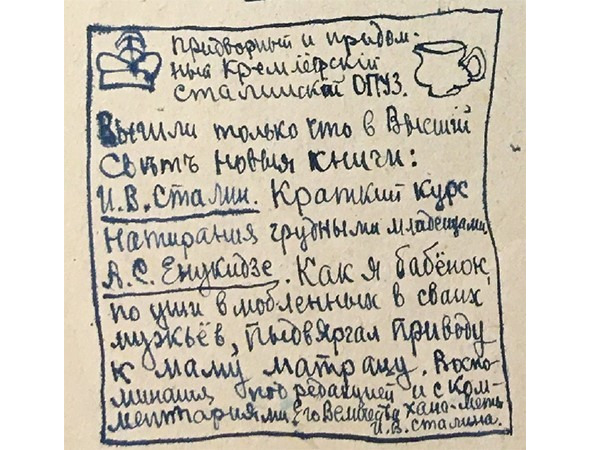 Придворный и придом-
ный Кремлёфскій
сталинской ОПУЗ.
Вышли только что в Высшій
Свѣтъ новыя книги:
И.В. Сталин. Краткий курс
натирания грудными младенцами
А.С. Енукидзе. Как я бабёнок,
по уши вмобленных в сваих
мужьёв, пыдвяргал приводу
к маму матрацу. Воспо-
минания под редакцией и с ком-
ментариями Его Величества
И.В. Сталина.